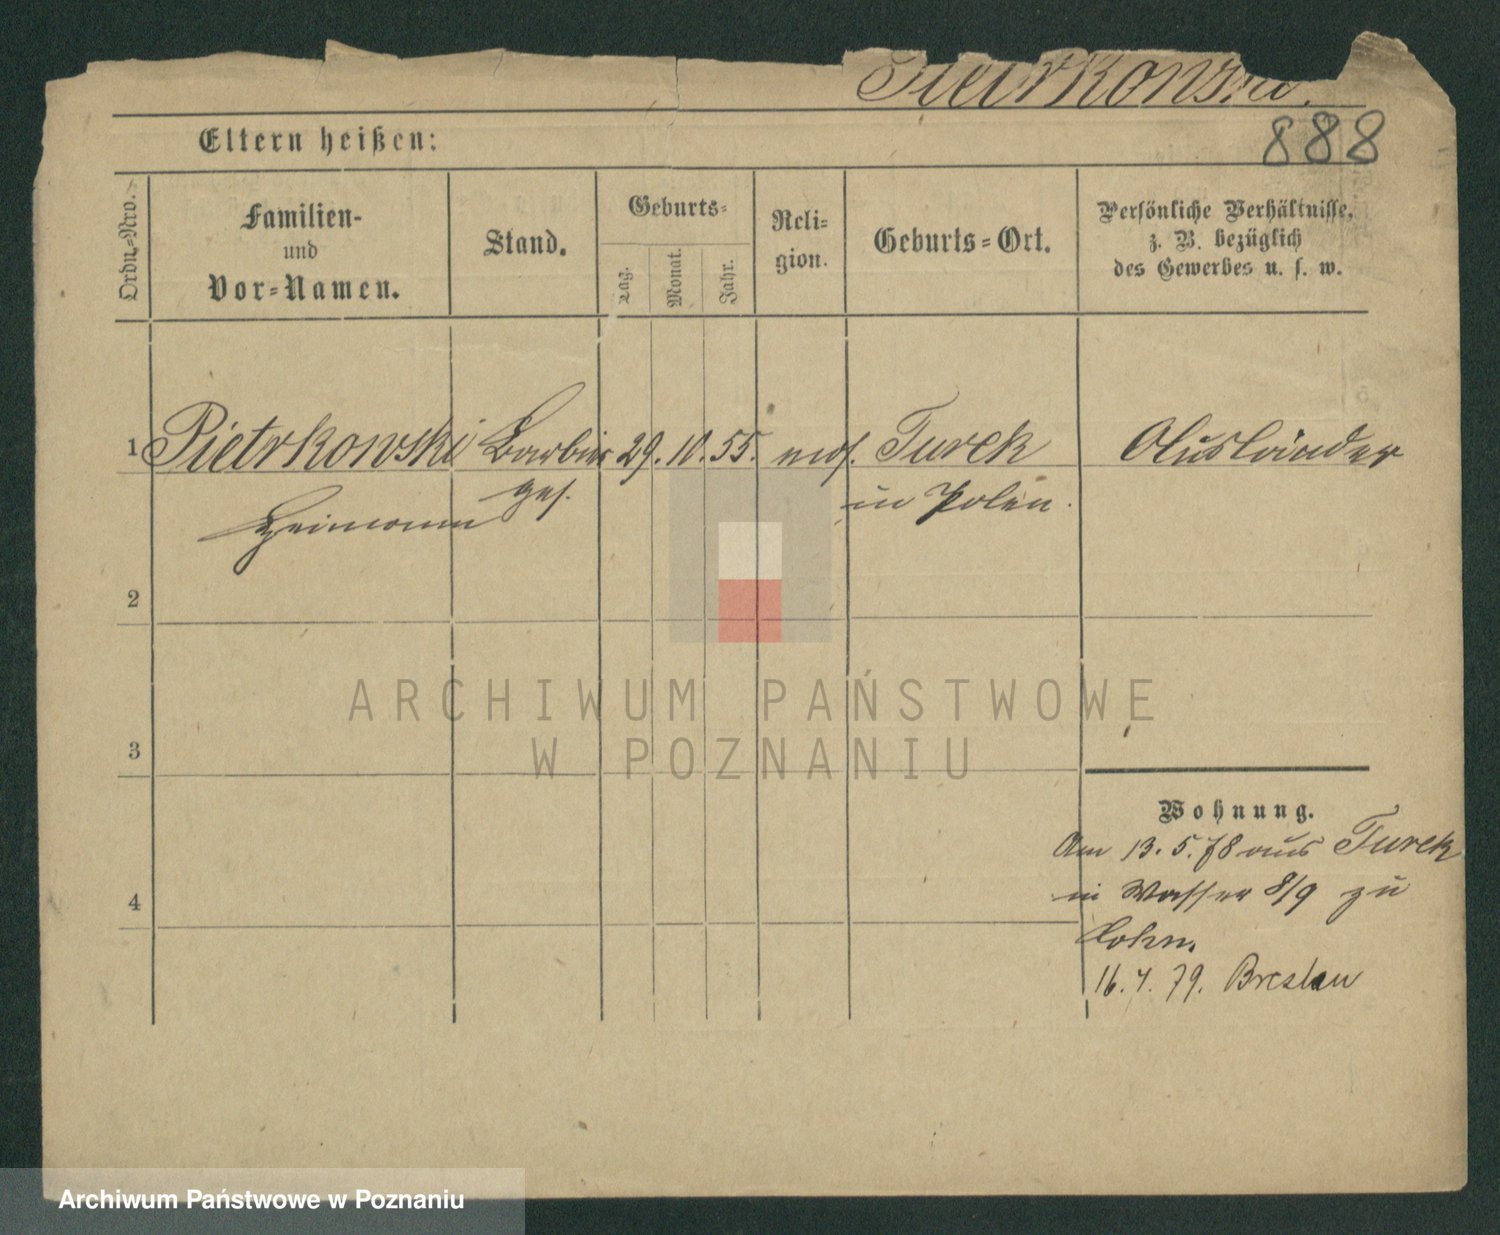 Pietrkowski.
888
Eltern heißen:
Ordn.-Nro.
Familien-
und
Vor-Namen.
Stand.
Geburts-
Tag.
Monat.
Jahr.
Reli-
gion.
Geburts-Ort.
Persönliche Verhältnisse,
z. B. bezüglich
des Gewerbes u. s. w.
1 Pietrkowski Barbier 29. 10. 55. mos. Turek Ausländer
Heimann ges. in Polen.
2
3
4
Wohnung.
Am 13. 5. 78 aus Turek
in Wasser 8/9 zu
Cohn.
16. 4. 79. Breslau
ARCHIWUM PAŃSTWOWE
W POZNANIU
Archiwum Państwowe w Poznaniu